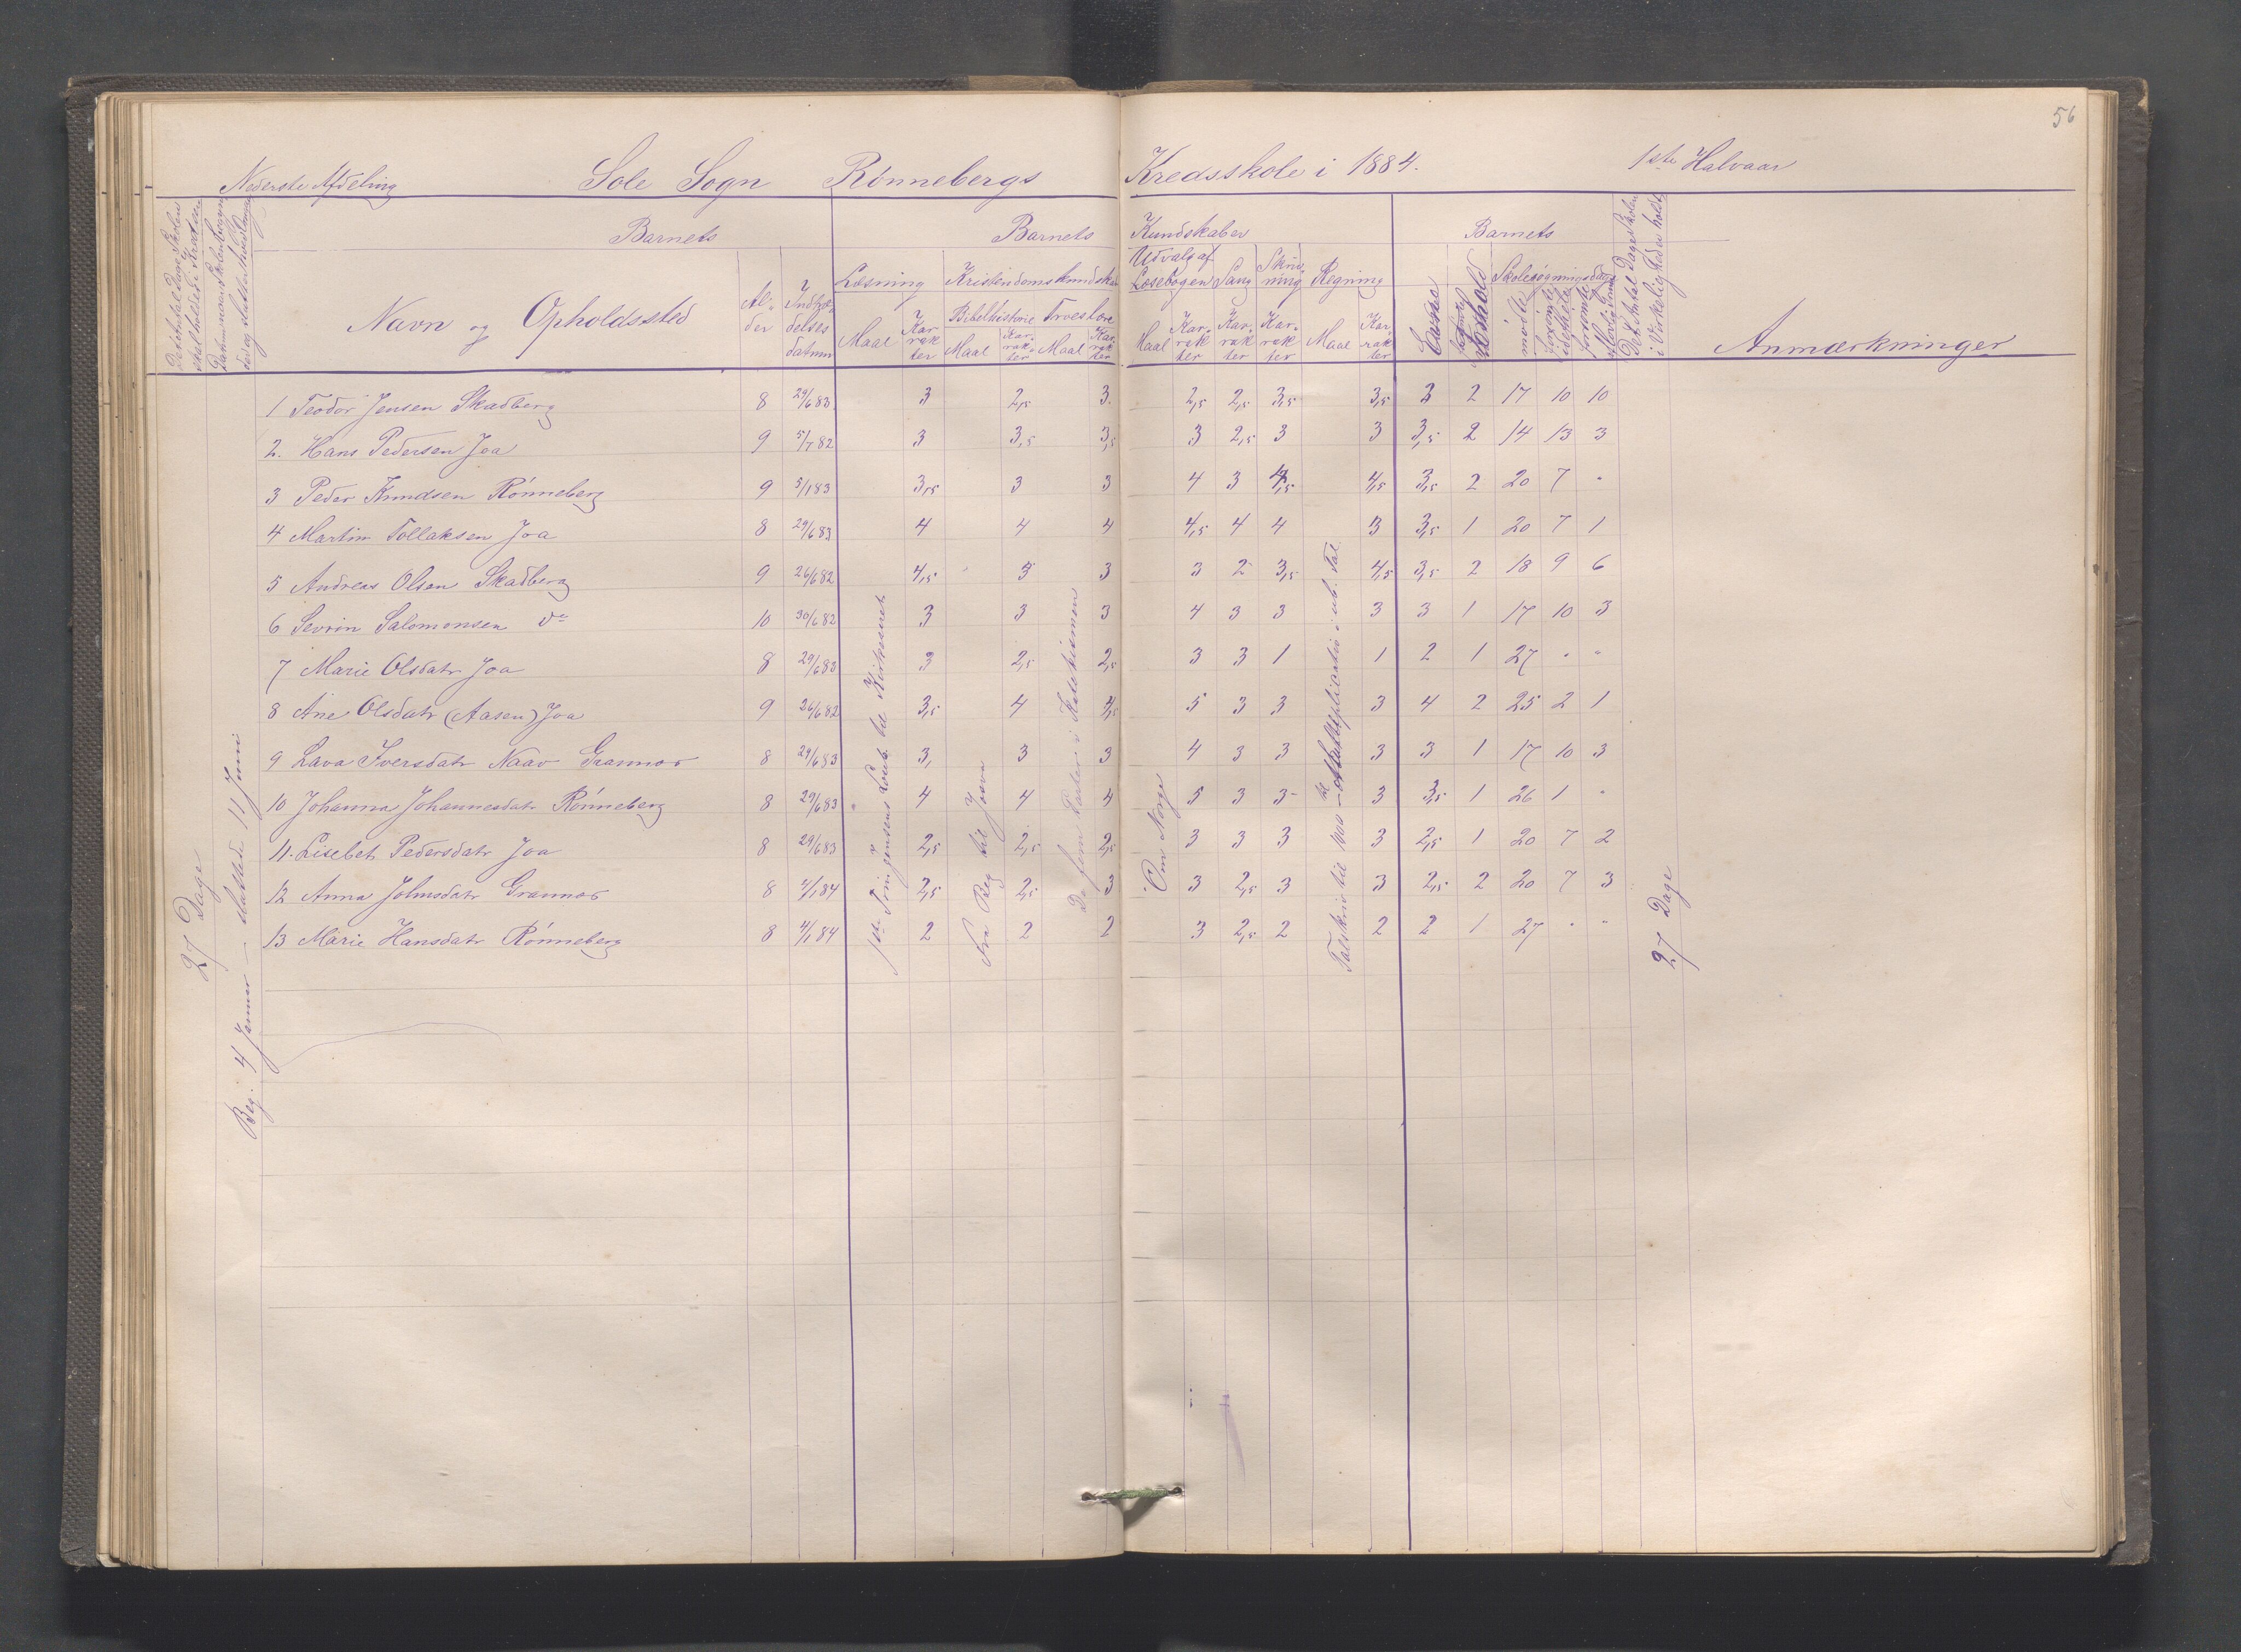 56
Nederste Afdeling Sole Sogn Rønnebergs Kredsskole i 1884. 1ste Halvaar
Det Antal Dage Skolen skal holdes i Kredsen
Barnets Barnets Kundskaber Barnets
Navn og Opholdssted
Alder
Indtrædelsesdatum
Læsning Kristendomskundskab Udvalg af Læsebogen Sang Skrivning Regning
Bibelhistorie Troeslære
Maal Karrakter Maal Karrakter Maal Karrakter Maal Karrakter Karrakter Karrakter Maal Karrakter
Evne Forhold Skolesøgningsdage
mødte forsømte forsømte
Det Antal Dage Skolen i Virkeligheden holdt
Anmærkninger
1 Teodor Jensen Skadberg 8 29/6 83 3 2,5 3 2,5 2,5 3,5 3,5 3 2 17 10 10
2. Hans Pedersen Joa 9 5/7 82 3 3,5 3,5 3 2,5 3 3 3,5 2 14 13 3
3 Peder Knudsen Rønneberg 9 5/1 83 3,5 3 3 4 3 4,5 4,5 3,5 2 20 7 "
4 Martin Tollaksen Joa 8 29/6 83 4 4 4 4,5 4 4 3 3,5 1 20 7 1
5 Andreas Olsen Skadberg 9 26/6 82 4,5 3 3 3 2 3,5 4,5 3,5 2 18 9 6
6 Sevrin Salomonsen do 10 30/6 82 3 3 3 4 3 3 3 3 1 17 10 3
7 Marie Olsdatr Joa 8 29/6 83 3 2,5 2,5 3 3 1 1 2 1 27 " "
8 Ane Olsdatr (Aasen) Joa 9 26/6 82 3,5 4 4,5 5 3 3 3 4 2 25 2 1
9 Lava Iversdatr Naav Grannos 8 29/6 83 3, 3 3 4 3 3 3 3 1 17 10 3
10 Johanna Johannesdatr Rønneberg 8 29/6 83 4 4 4 5 3 3 3 3,5 1 26 1 "
11. Lisebet Pedersdatr Joa 8 29/6 83 2,5 2,5 2,5 3 3 3 3 2,5 1 20 7 2
12 Anna Johnsdatr Grannos 8 4/1 84 2,5 2,5 3 3 2,5 3 3 2,5 2 20 7 3
13 Marie Hansdatr Rønneberg 8 4/1 84 2 2 2 3 2,5 2 2 2 1 27 " "
27 Dage
Beg. 4 Januar – sluttede 11 Juni
Fra Beg til Josva
De fem Parter i Katekismen
Om Norge
Talskriv til 1000 – Multiplication i ub. Tal
27 Dage